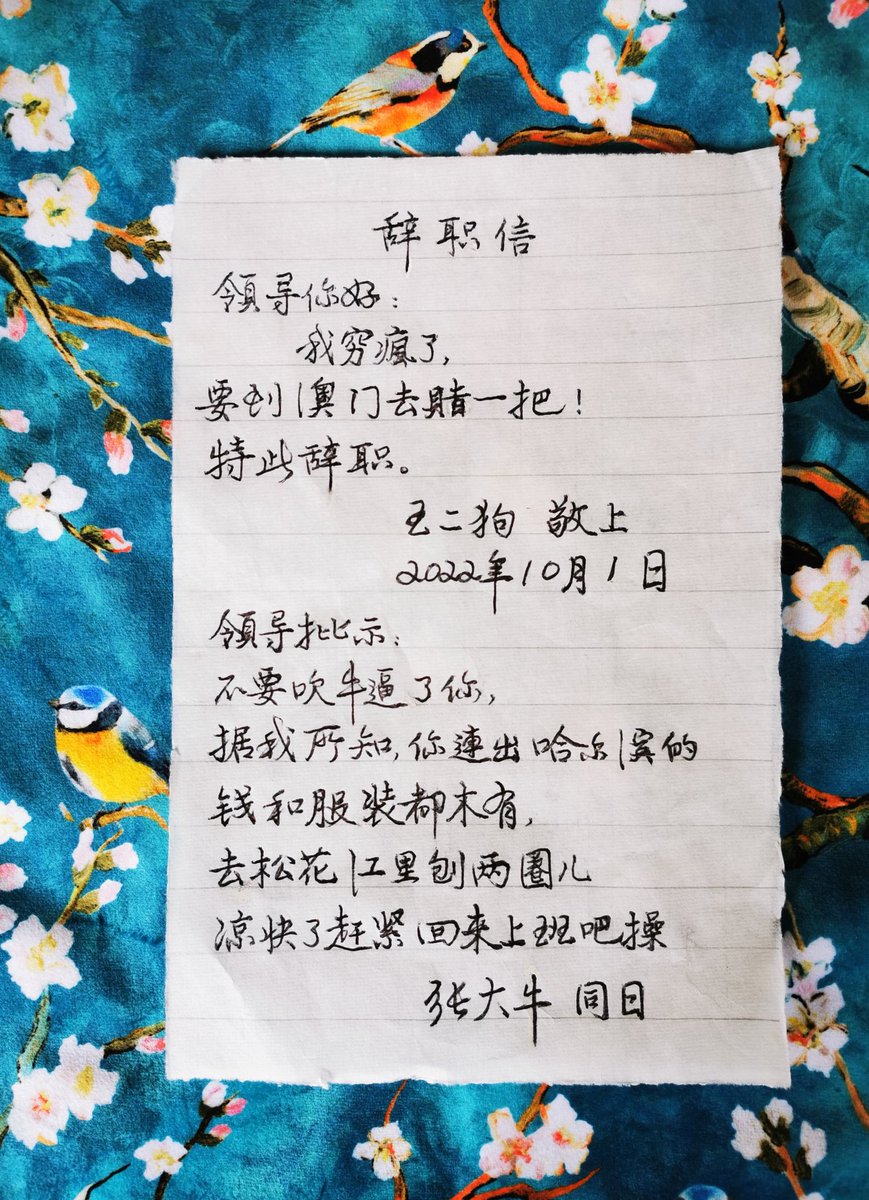 辞职信
领导你好：
我穷瘋了，
要到澳门去賭一把！
特此辞职。
王二狗 敬上
2022年10月1日
領导批示：
不要吹牛逼了你，
据我所知，你連出哈尔滨的
钱和服装都木有，
去松花江里刨两圈儿
凉快了赶紧回来上班吧操
张大牛 同日